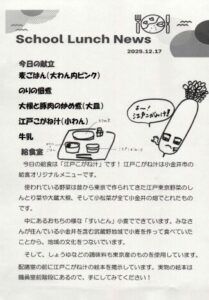 School Lunch News
2025.12.17
今日の献立
麦ごはん(大わん内ピンク)
のりの佃煮
大根と豚肉の炒め煮(大皿)
江戸こがねけ(小わん)
牛乳
給食室
よ〜!
江戸こがねけ!
今日の給食は「江戸こがねけ」です!江戸こがねけは小金井市の
給食オリジナルメニューです。
使われている野菜は昔から東京で作られてきた江戸東京野菜のし
んとり菜や大蔵大根、そして小松菜が全て小金井の畑でとれたもの
です。
中にあるおもちの様な「すいとん」小麦でできています。みなさ
んが住んでいる小金井を含む武蔵野地域で小麦を作って食べていた
ことから、地域の文化をつないでいます。
そして、しょうゆなどの調味料も東京産のものを使用しています。
配膳室の前に江戸こがねけの絵本を掲示しています。実物の絵本は
職員室前階段にあるので、手にしてみてください!